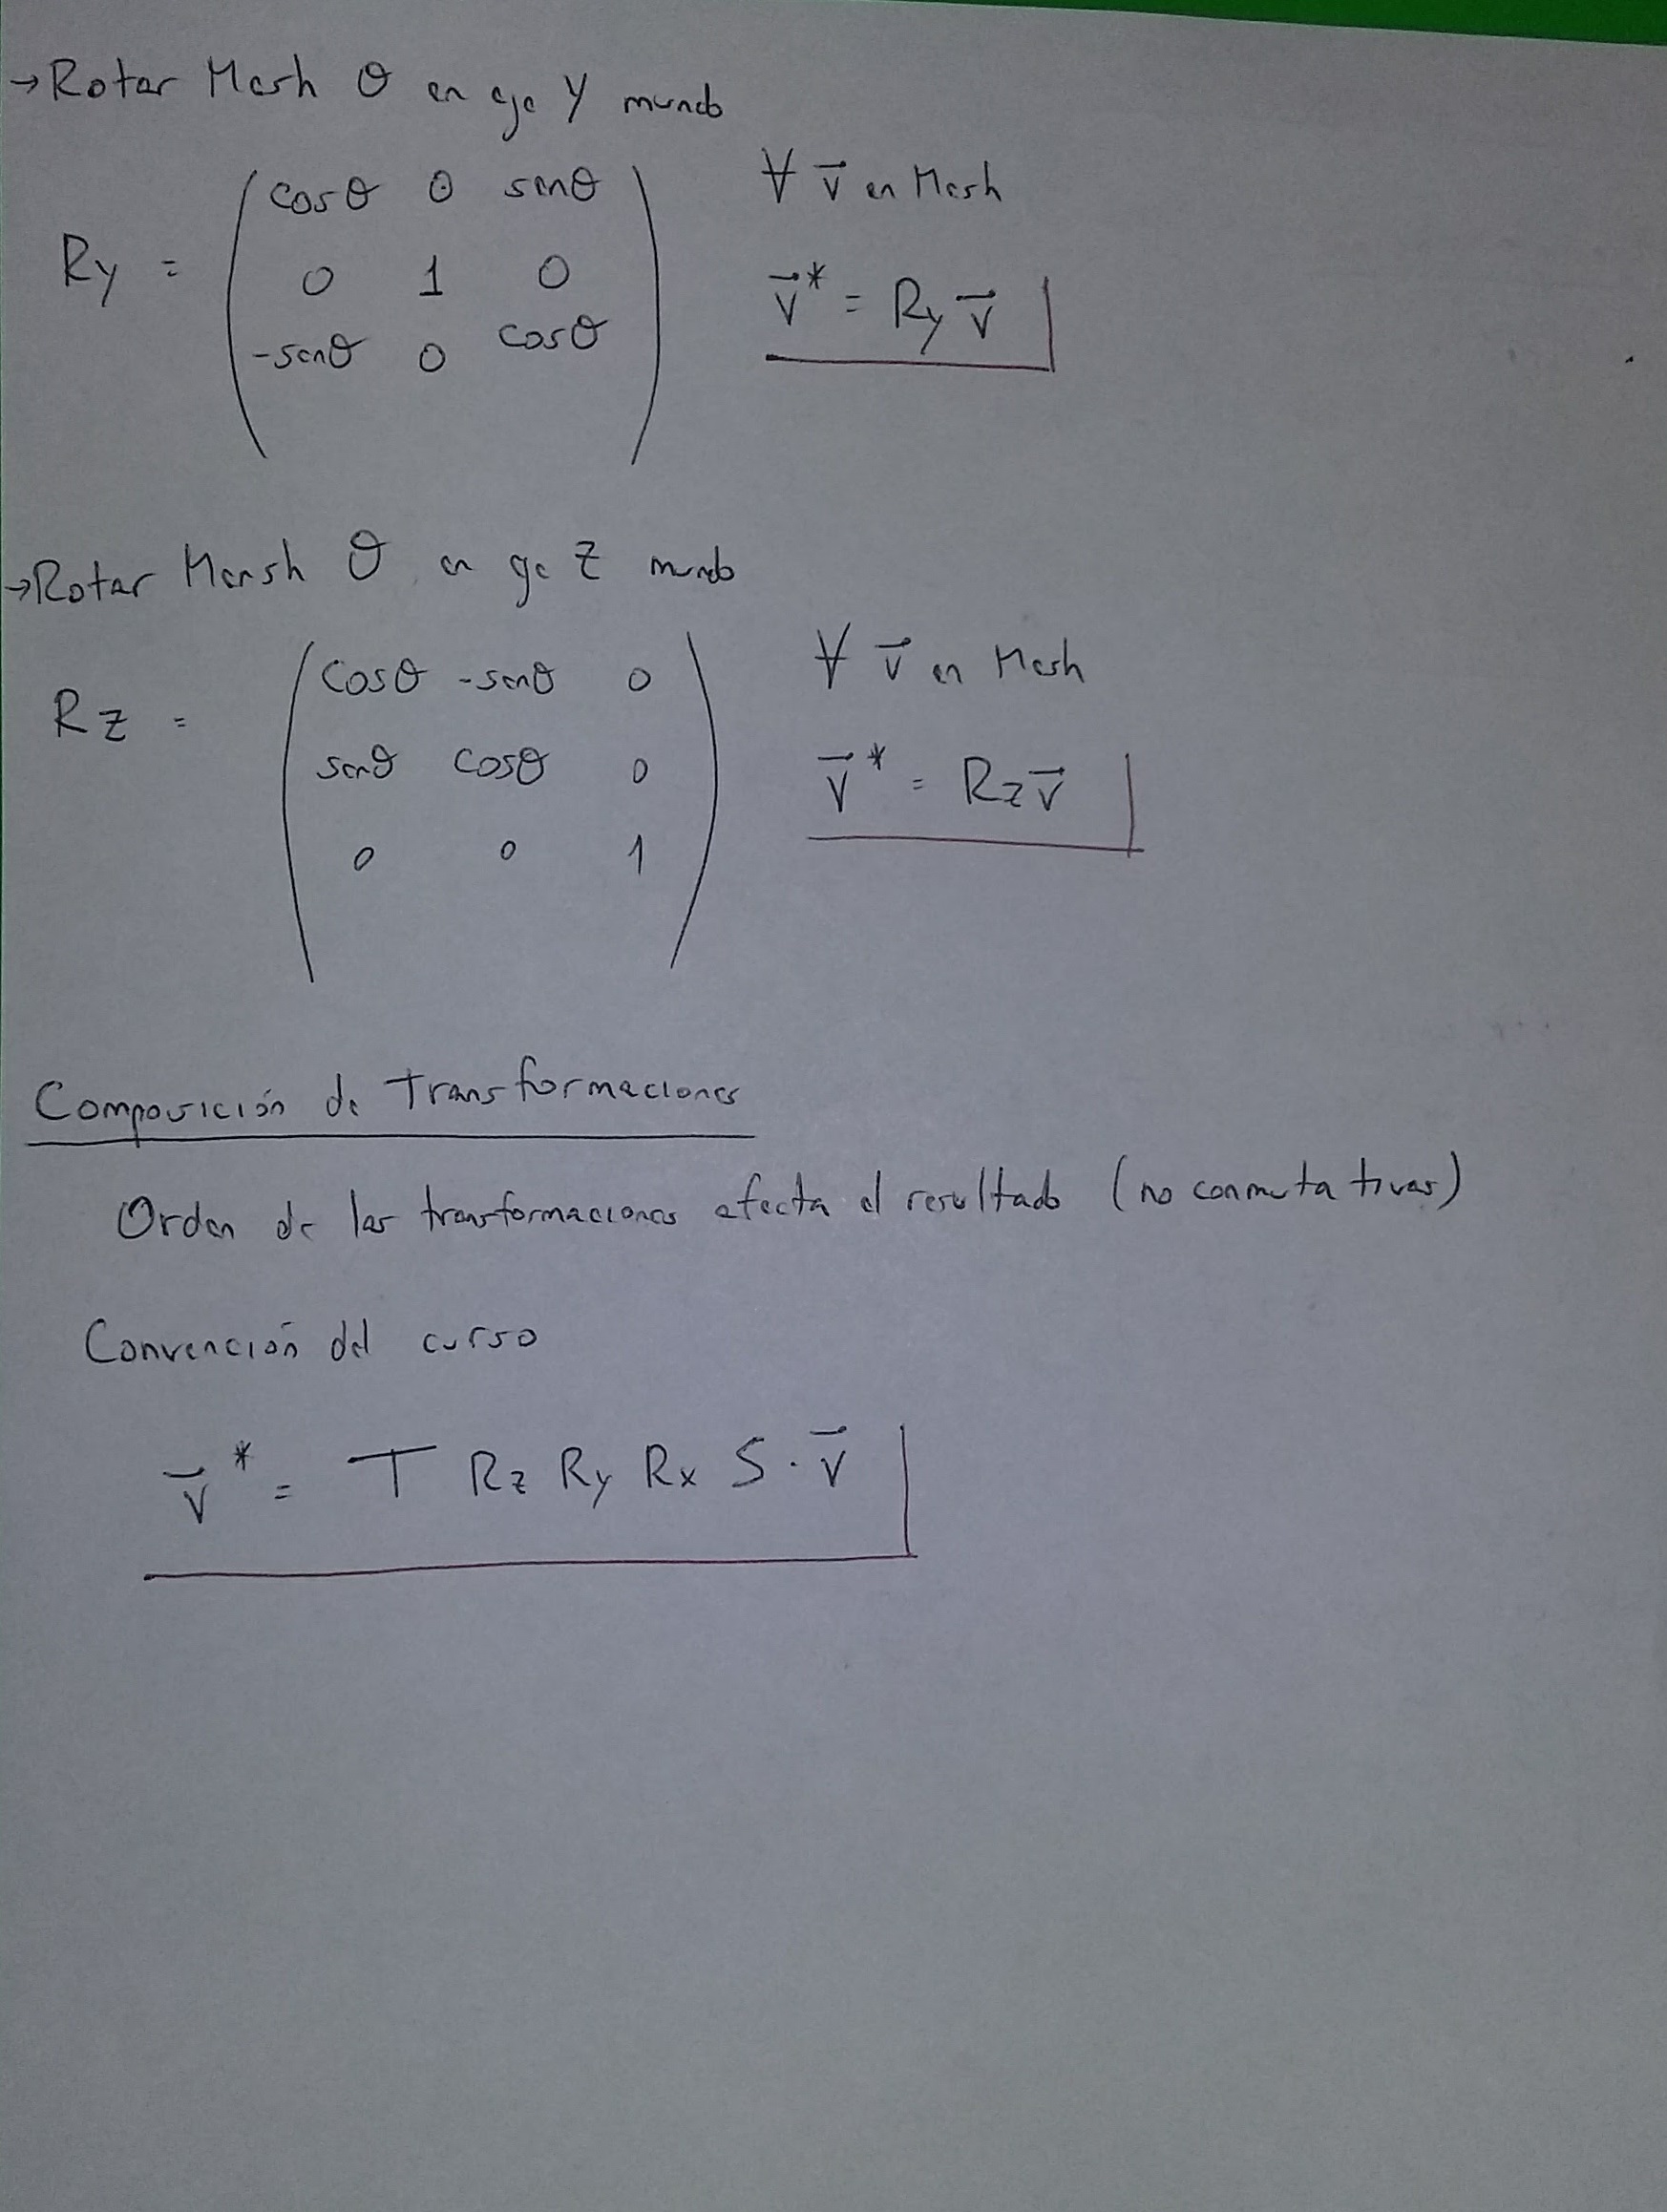 →Rotar Mesh θ en eje Y mundo
Ry = ( cosθ 0 senθ
0 1 0
-senθ 0 cosθ )
∀ v⃗ en Mesh
v⃗* = Ry v⃗
→Rotar Mensh θ en eje Z mundo
Rz = ( cosθ -senθ 0
senθ cosθ 0
0 0 1 )
∀ v⃗ en Mesh
v⃗* = Rz v⃗
Composición de Transformaciones
Orden de las transformaciones afecta el resultado (no conmutativas)
Convención del curso
v⃗* = T Rz Ry Rx S · v⃗